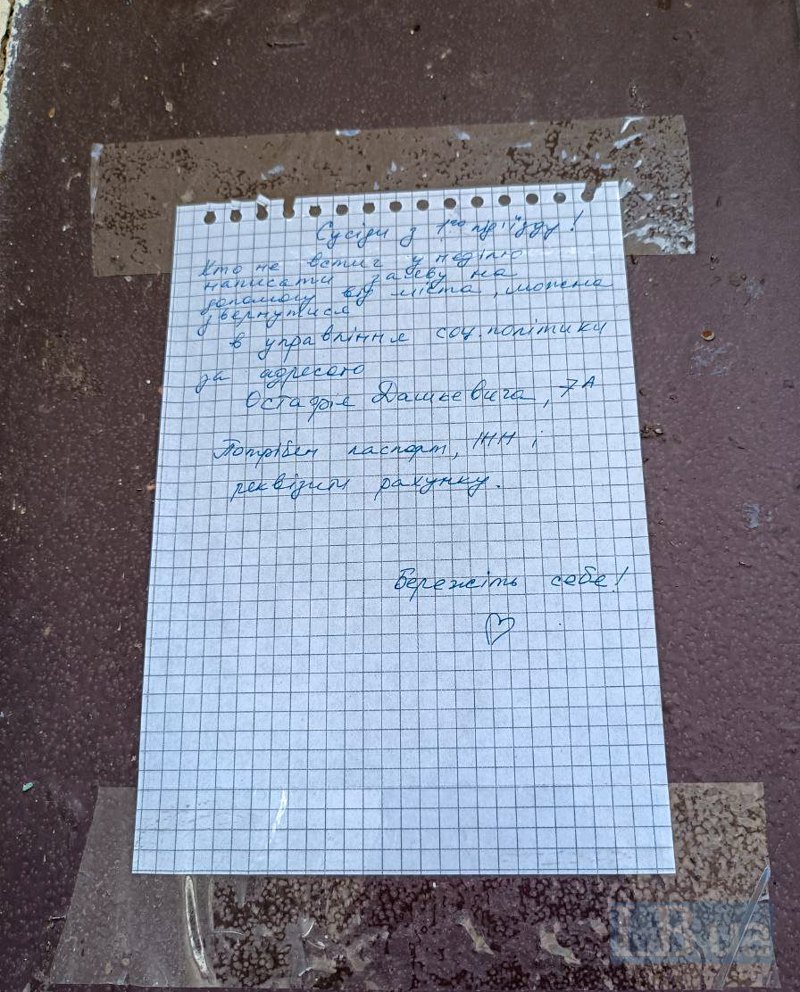 Сусіди з 1го під'їзду!
Хто не встиг у неділю
написати заяву на
допомогу від міста, можна
звернутися
в управління соц. політики
за адресою
Остафія Дашкевича, 7А
Потрібен паспорт, ІНН і
реквізити рахунку.
Бережіть себе!
LB.ua